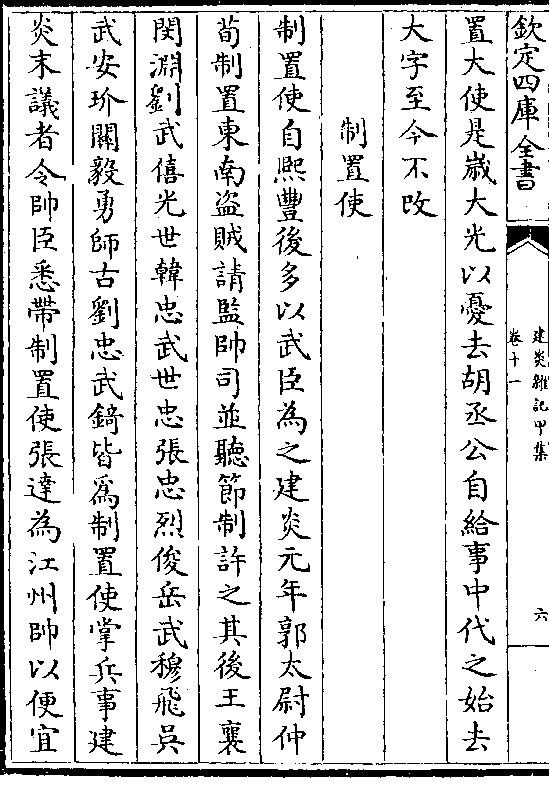 欽定四庫全書
建炎雜記甲集
卷十一
六
置大使是歲大光以憂去胡丞公自給事中代之始去
大字至今不改
制置使
制置使自熙豐後多以武臣為之建炎元年郭太尉仲
荀制置東南盜賊請監帥司並聽節制許之其後王襄
閔淵劉武僖光世韓忠武世忠張忠烈俊岳武穆飛吳
武安玠關毅勇師古劉忠武錡皆為制置使掌兵事建
炎末議者令帥臣悉帶制置使張達為江州帥以便宜